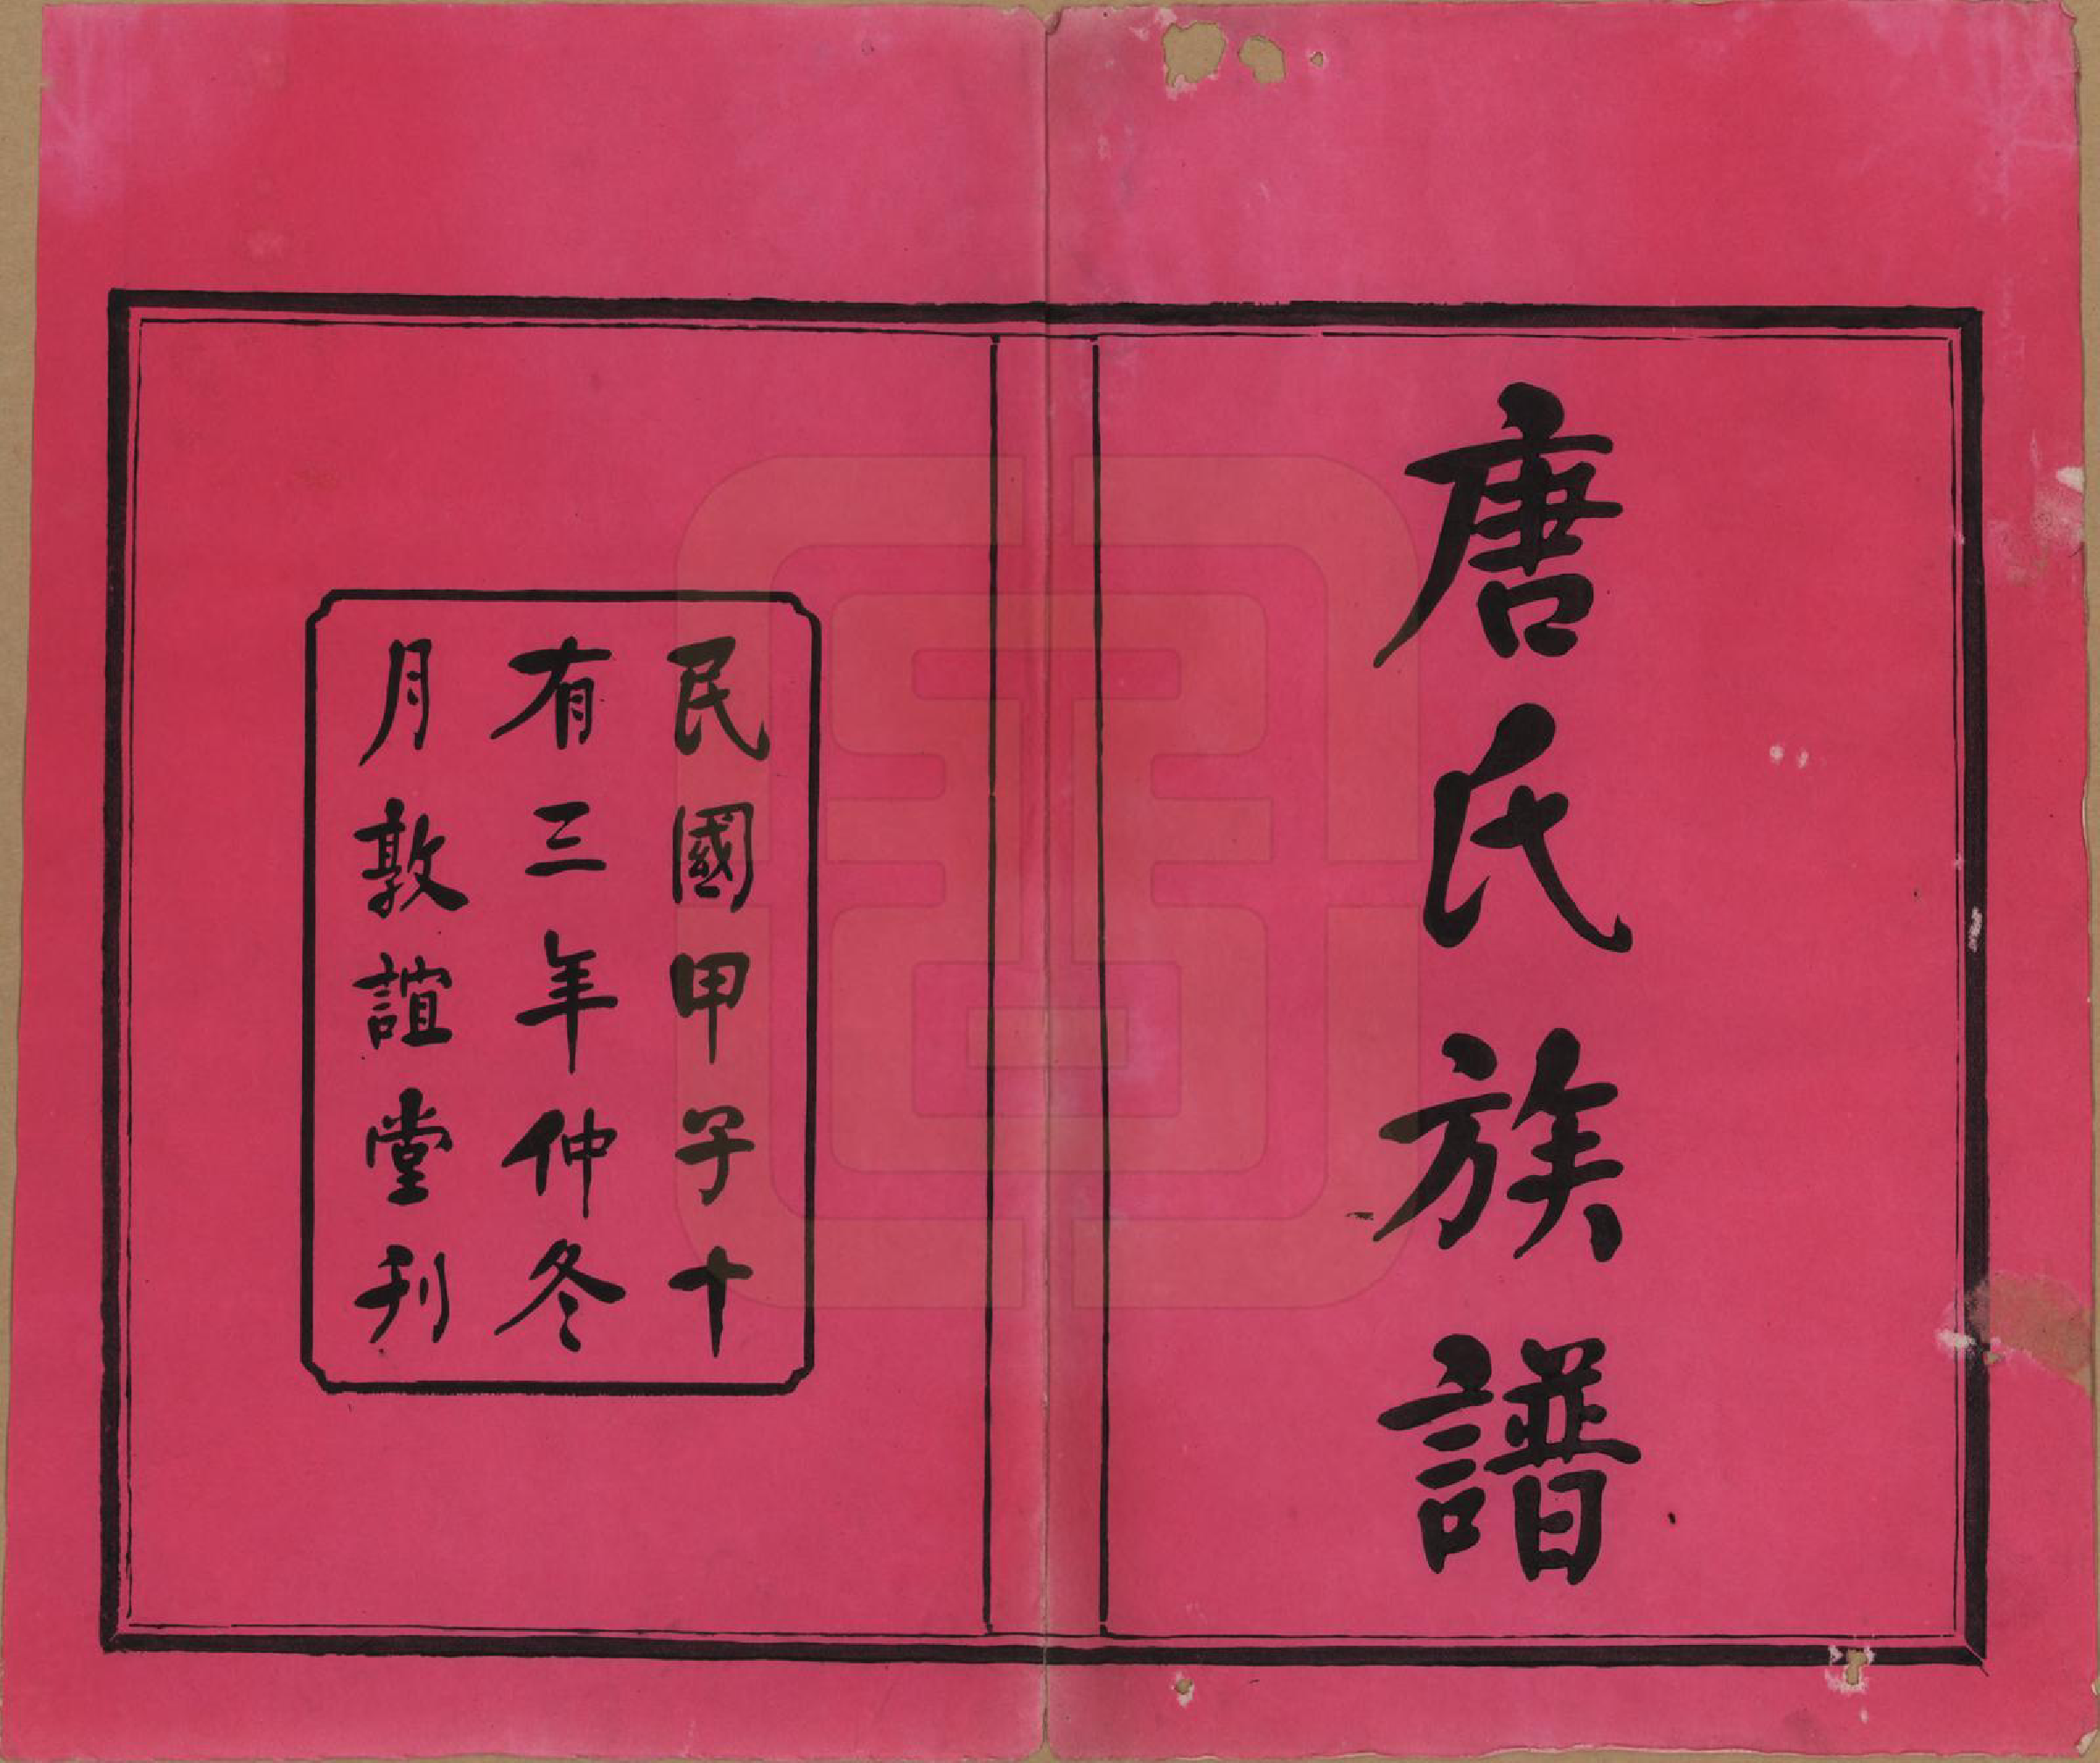 唐氏族譜
民國甲子十
有三年仲冬
月敦誼堂刊